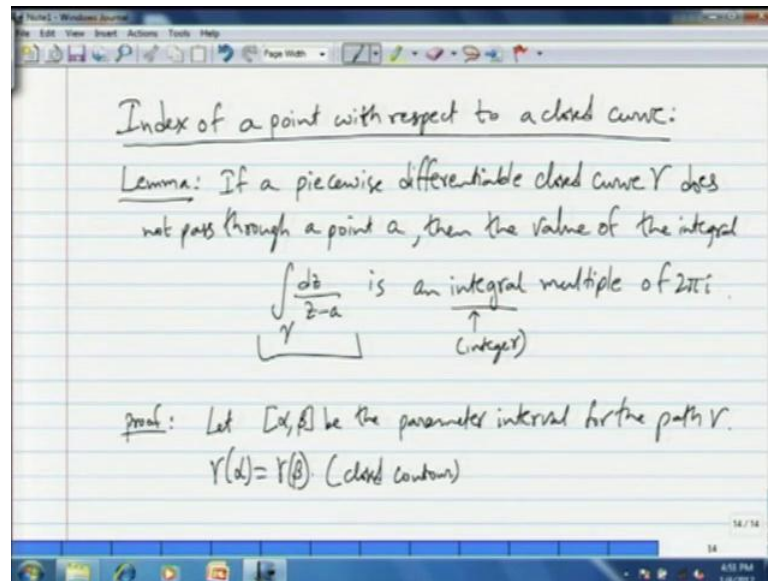 Note1 - Windows Journal
File Edit View Insert Actions Tools Help
Page Width
Index of a point with respect to a closed curve:
Lemma: If a piecewise differentiable closed curve γ does
not pass through a point a, then the value of the integral
∫_γ dz/(z-a) is an integral multiple of 2πi.
↑
(integer)
proof: Let [α, β] be the parameter interval for the path γ.
γ(α) = γ(β). (closed contour)
14 / 14
14
4:51 PM